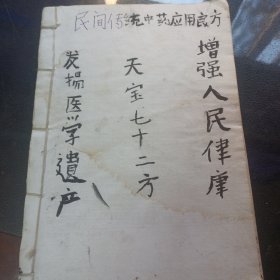 民间传统中药应用良方
增强人民律康
天宝七十二方
发揚医学遺产